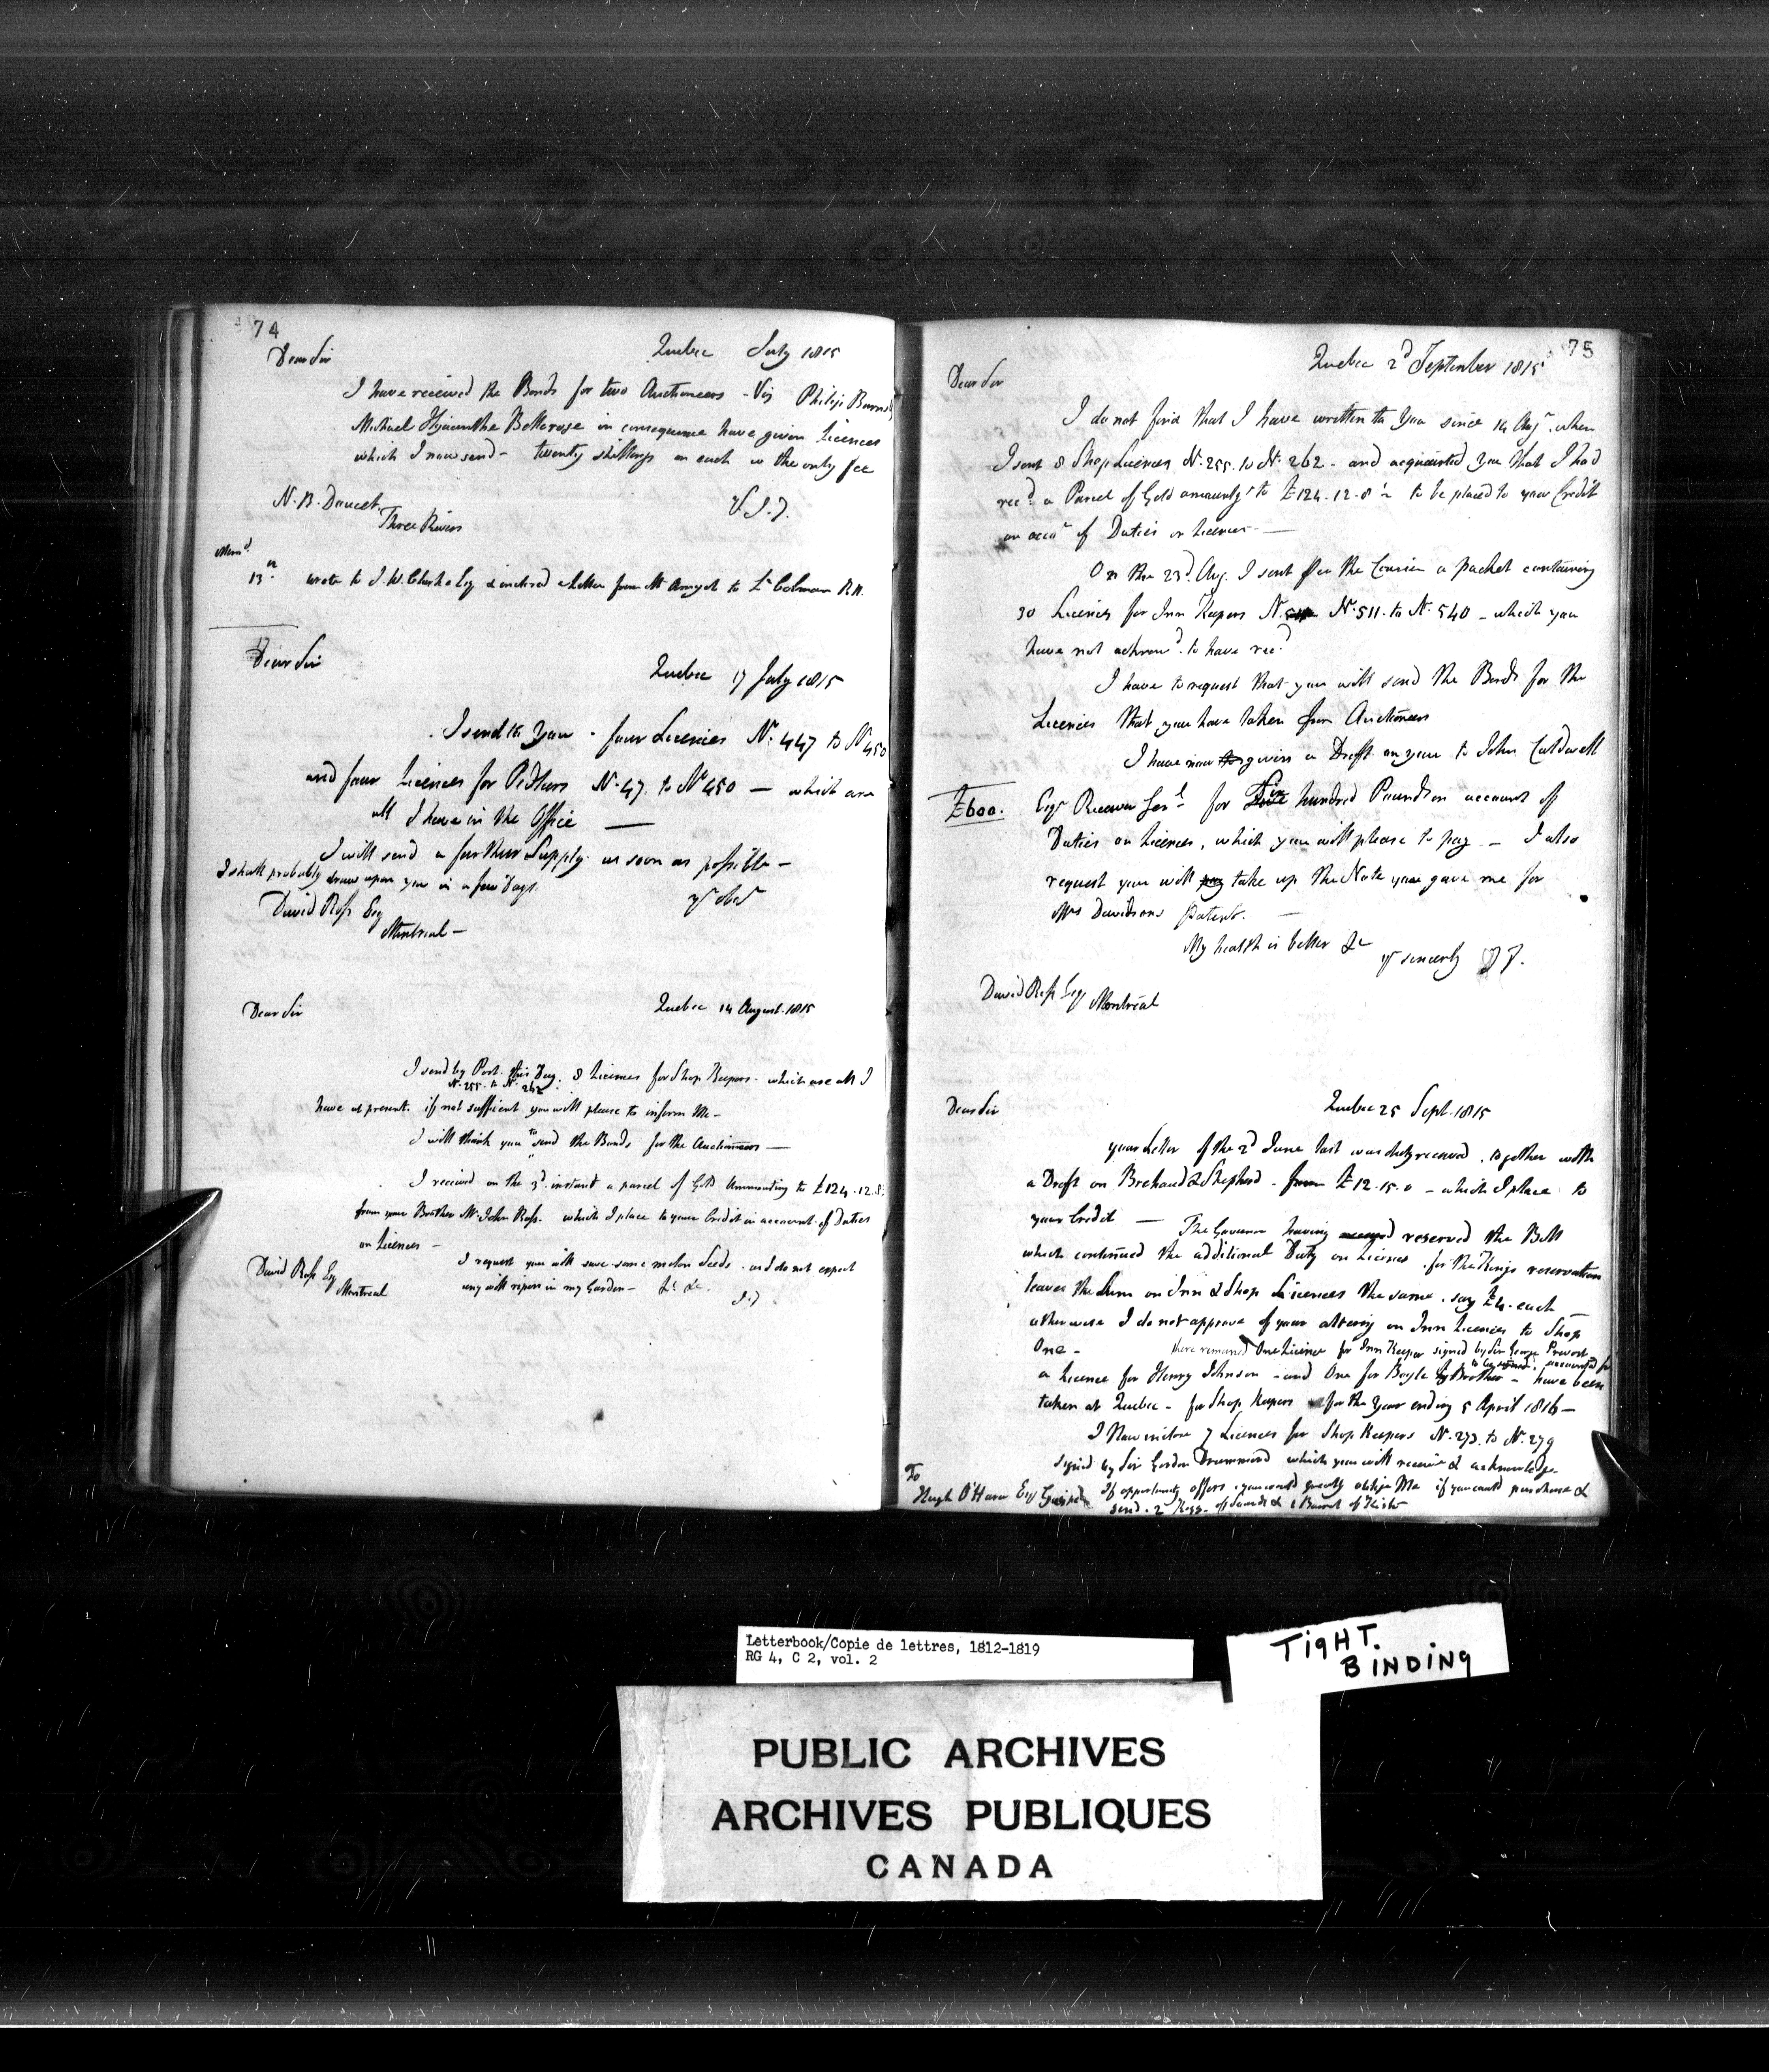 74
Dear Sir Quebec July 1815
I have received the Bonds for two Auctioneers - Viz Philip Burns
Michael Hyacinthe Bellerose in consequence have given Licences
which I now send - twenty shillings on each is the only fee
N. B. Doucet
Three Rivers
Mem.d
13 wrote to J. W. Clarke Esq & inclosed a letter from Mr Amyot to Lt Colman R.N.
Dear Sir
Quebec 17 July 1815
I send to You - four Licences No. 447 to No 450
and four Licences for Pedlars No. 47. to No 450 — which are
all I have in the Office —
I will send a further Supply as soon as possible -
I shall probably draw upon you in a few days.
David Ross Esq
Montreal -
Dear Sir Quebec 14 August 1815
I send by Post this Day. 8 Licences for Shop Keepers - which are all I
N. 255. to N. 262
have at present. if not sufficient you will please to inform Me -
I will thank you to send the Bonds for the Auctioneers —
I received on the 3d instant a parcel of Gold Ammounting to £124.12.8
from your Brother Mr. John Ross. which I place to your Credit in account of Duties
on Licences -
I request you will save some melon Seeds - and do not expect
David Ross Esq
Montreal
any will ripen in my Garden - &c &c.
75
Quebec 2d September 1815
Dear Sir
I do not find that I have written to You since 14 Augt. when
I sent 8 Shop Licences N. 255. to N. 262 - and acquainted you that I had
recd. a Parcel of Gold amountg to £124.12.8½ to be placed to your Credit
on acct of Duties on Licences —
On the 23d. Aug. I sent per the Courier a packet containing
30 Licences for Inn Keepers No. 511. to N. 540 - which you
have not acknowd. to have recd
I have to request that you will send the Bonds for the
Licences that you have taken from Auctioneers
I have now given a Draft on you to John Caldwell
£600. Esqr Receiver Genl for Six hundred Pounds on account of
Duties on Licences, which you will please to pay - I also
request you will pay take up the Note you gave me for
Mrs Davidsons Patent. —
My health is better &c
yr sincerely
David Ross Esq Montreal
Dear Sir Quebec 25 Sept. 1815
your Letter of the 2d June last was duly received, together with
a Draft on Brehaut & Shepherd - from £12.15.0 - which I place to
your Credit — The Governor having reserved the Bill
which continued the additional Duty on Licences, for the Kings reservation
leaves the Sum on Inn & Shop Licences the same. say £4. each —
otherwise I do not approve of your altering an Inn Licences to Shop
One - there remained One Licence for Inn Keeper signed by Sir George Prevost
accounted for
a Licence for Henry Johnson - and One for Boyle - have been
taken at Quebec - for Shop Keepers for the Year ending 5 April 1816 —
I Now inclose 7 Licences for Shop Keepers N. 273. to N. 279
signed by Sir Gordon Drummond which you will receive & acknowledge
To
Hugh O'Hara Esq Gaspé If opportunity offers, you would greatly oblige Me if you could purchase &
send - 2 Kegs - of Sounds & 1 Barrel of
Letterbook/Copie de lettres, 1812-1819
RG 4, C 2, vol. 2
TIGHT.
BINDING
PUBLIC ARCHIVES
ARCHIVES PUBLIQUES
CANADA